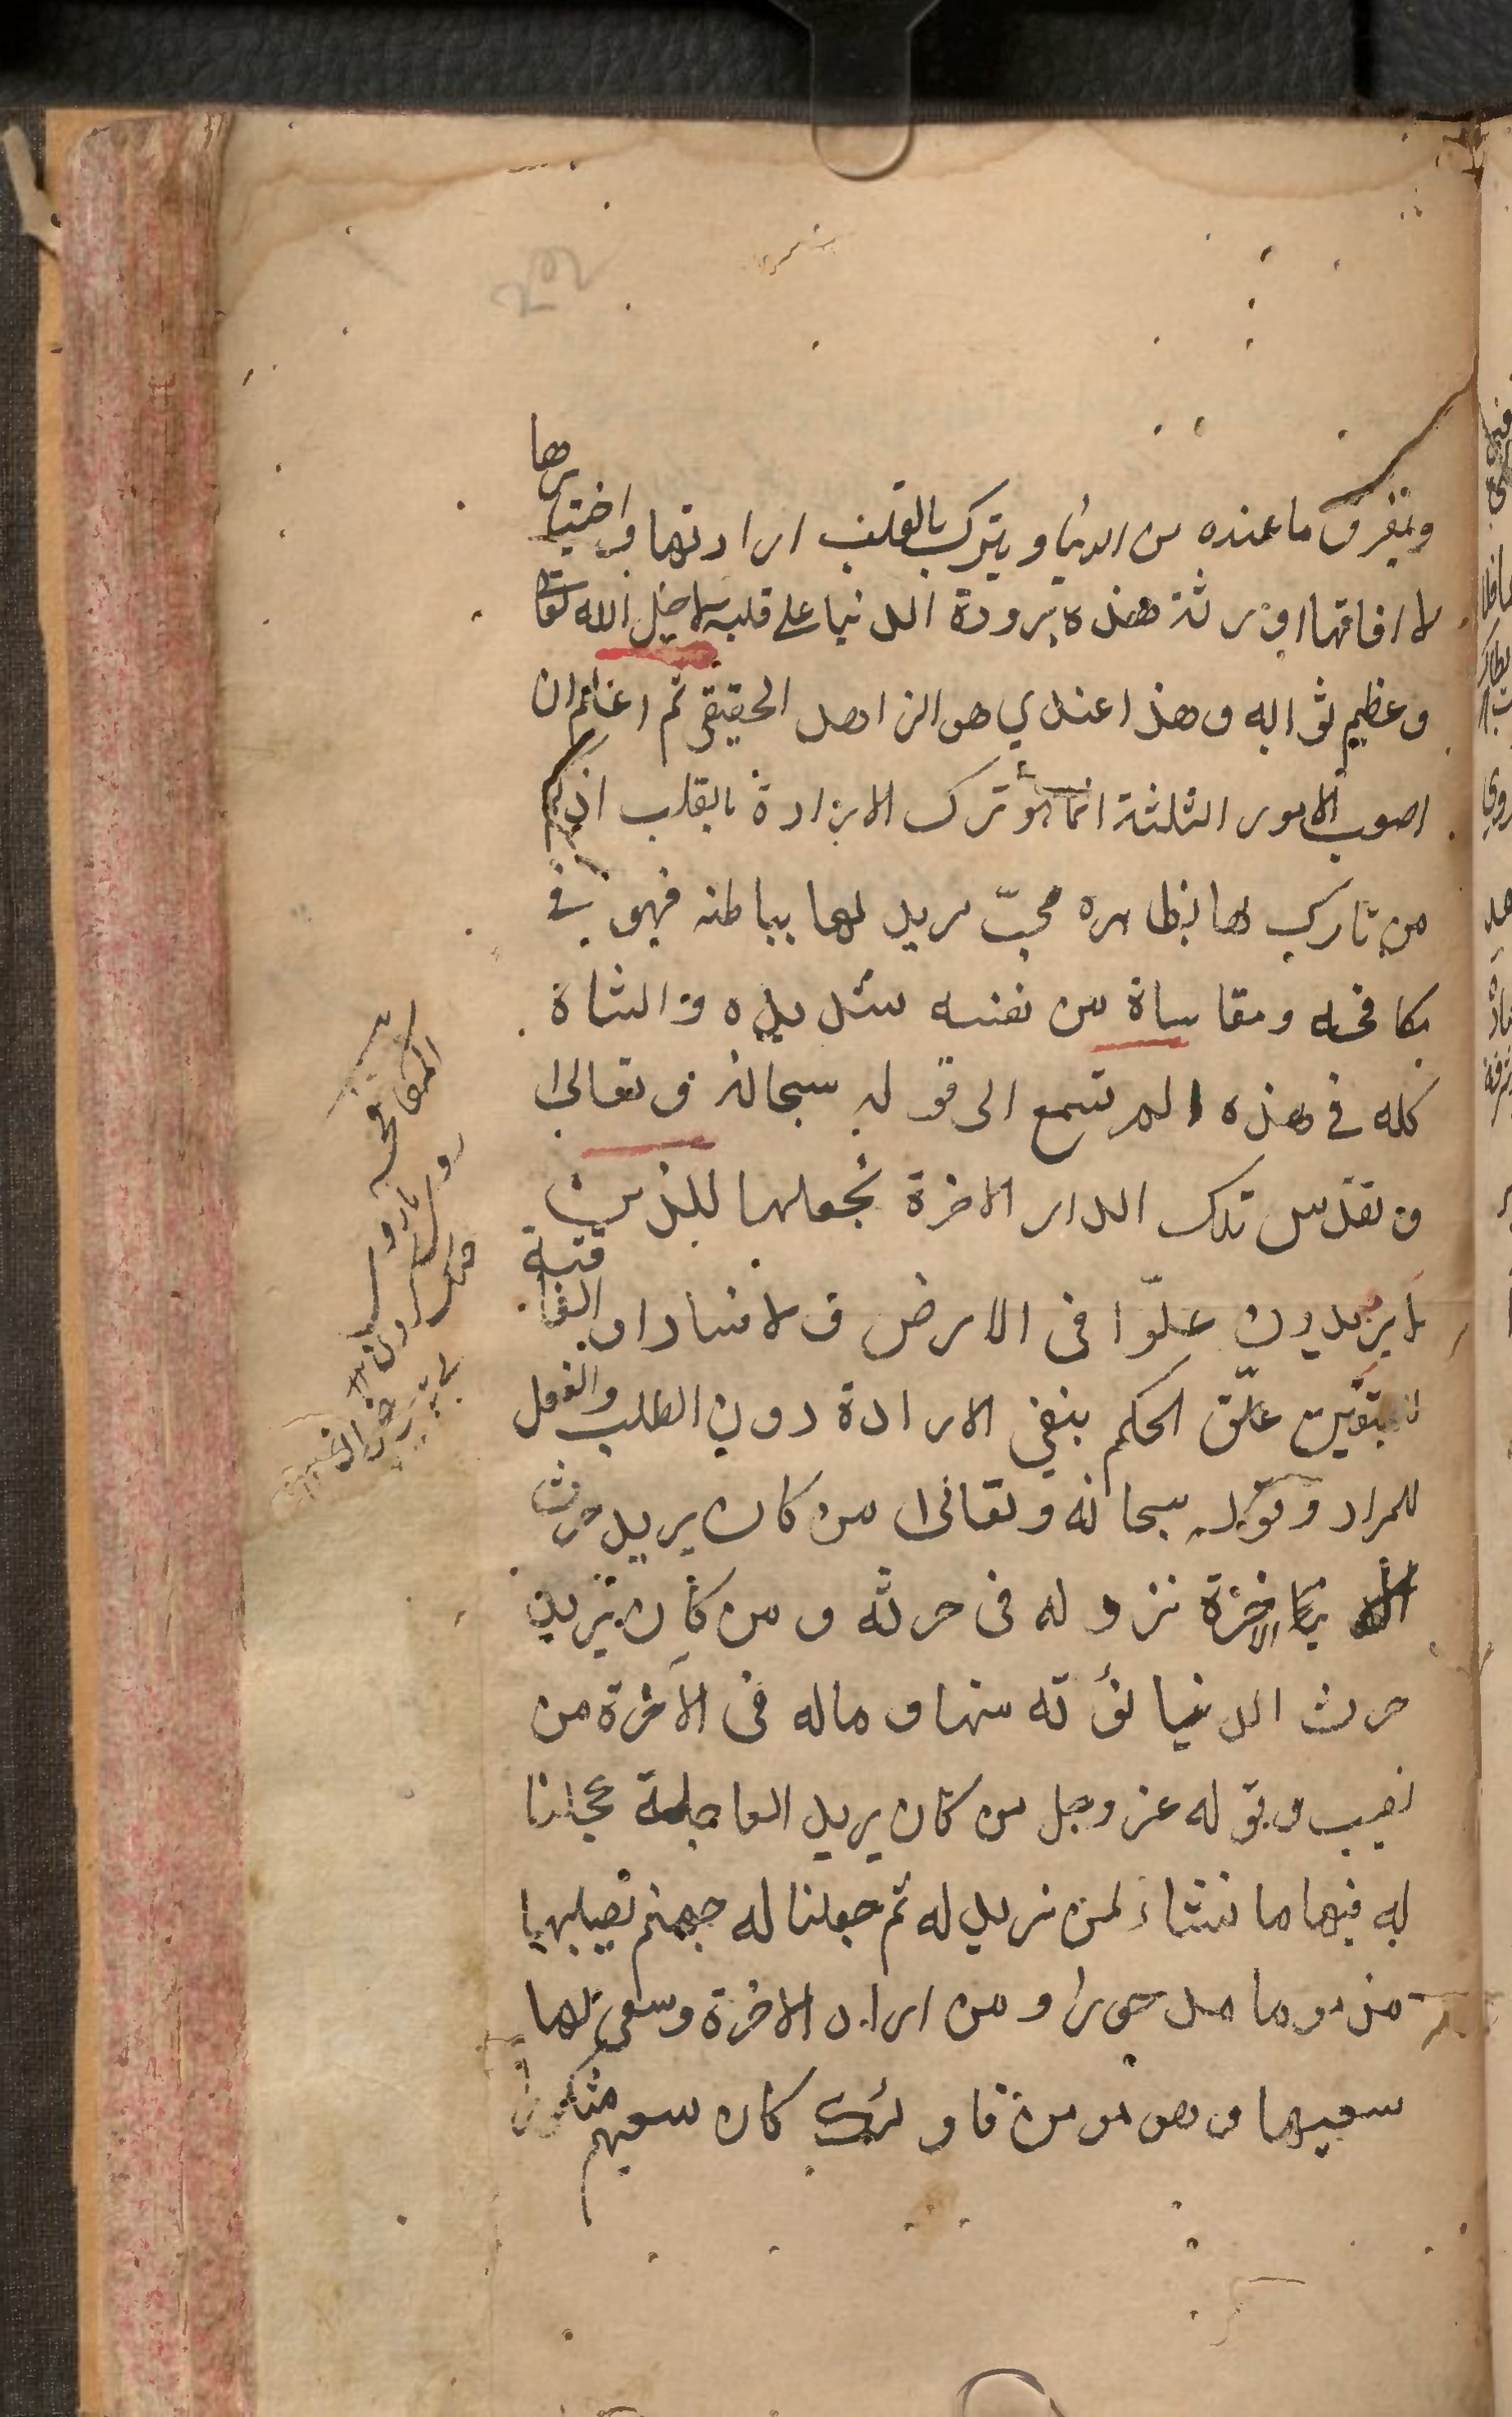 ويفرق ما عنده من الدنيا ويترك بالقلب ارادتها واختيارها
لا افاتها اورثته هذه برودة الدنيا على قلبه لاجل الله تعالى
وعظيم ثوابه وهذا عندي هو الزاهد الحقيقي ثم اعلم ان
اصعب الامور الثلثة انما هو ترك الارادة بالقلب اذ كم
من تارك لها بظاهره محبّ مريد لها بباطنه فهو في
مكافحه ومقاساة من نفسه شديده والشاة
كله في هذه الم تسمع الى قوله سبحانه وتعالى
وتقدس تلك الدار الاخرة نجعلها للذين
لا يريدون علوّا في الارض ولا فسادا والعاقبة
للمتقين علّق الحكم بنفي الارادة دون الطلب والفعل
للمراد وقوله سبحانه وتعالى من كان يريد حرث
الاخرة نزد له في حرثه ومن كان يريد
حرث الدنيا نؤته منها وماله في الآخرة من
نصيب وبقوله عز وجل من كان يريد العاجلة عجلنا
له فيها ما نشاء لمن نريد له ثم جعلنا له جهنم يصليها
مذموما مدحورا ومن اراد الاخرة وسعى لها
سعيها وهو مومن فاولئك كان سعيهم مشكورا
المكافحه